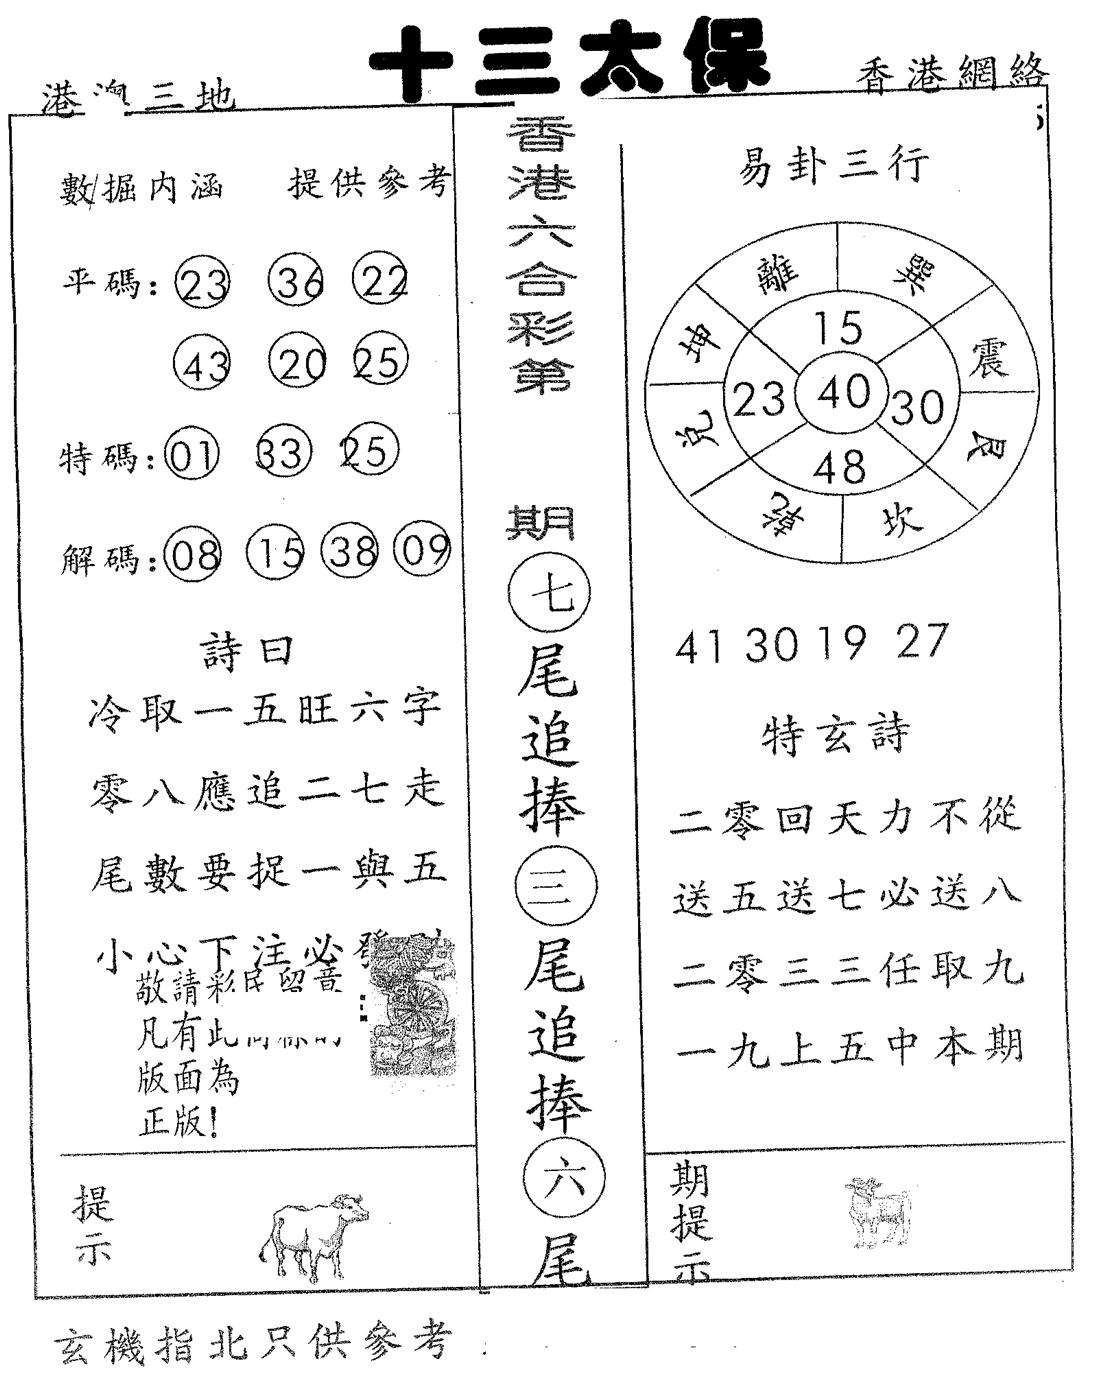 十三太保
港澳三地
香港網絡
數據內涵 提供參考
平碼：23 36 22
43 20 25
特碼：01 33 25
解碼：08 15 38 09
詩曰
冷取一五旺六字
零八應追二七走
尾數要捉一與五
小心下注必發
敬請彩民留意
凡有此商標的
版面為
正版！
提示
香港六合彩第
期
七尾追捧三尾追捧六尾
易卦三行
離 巽
坤 震
兌 艮
乾 坎
15
23 40 30
48
41 30 19 27
特玄詩
二零回天力不從
送五送七必送八
二零三三任取九
一九上五中本期
期提示
玄機指北只供參考